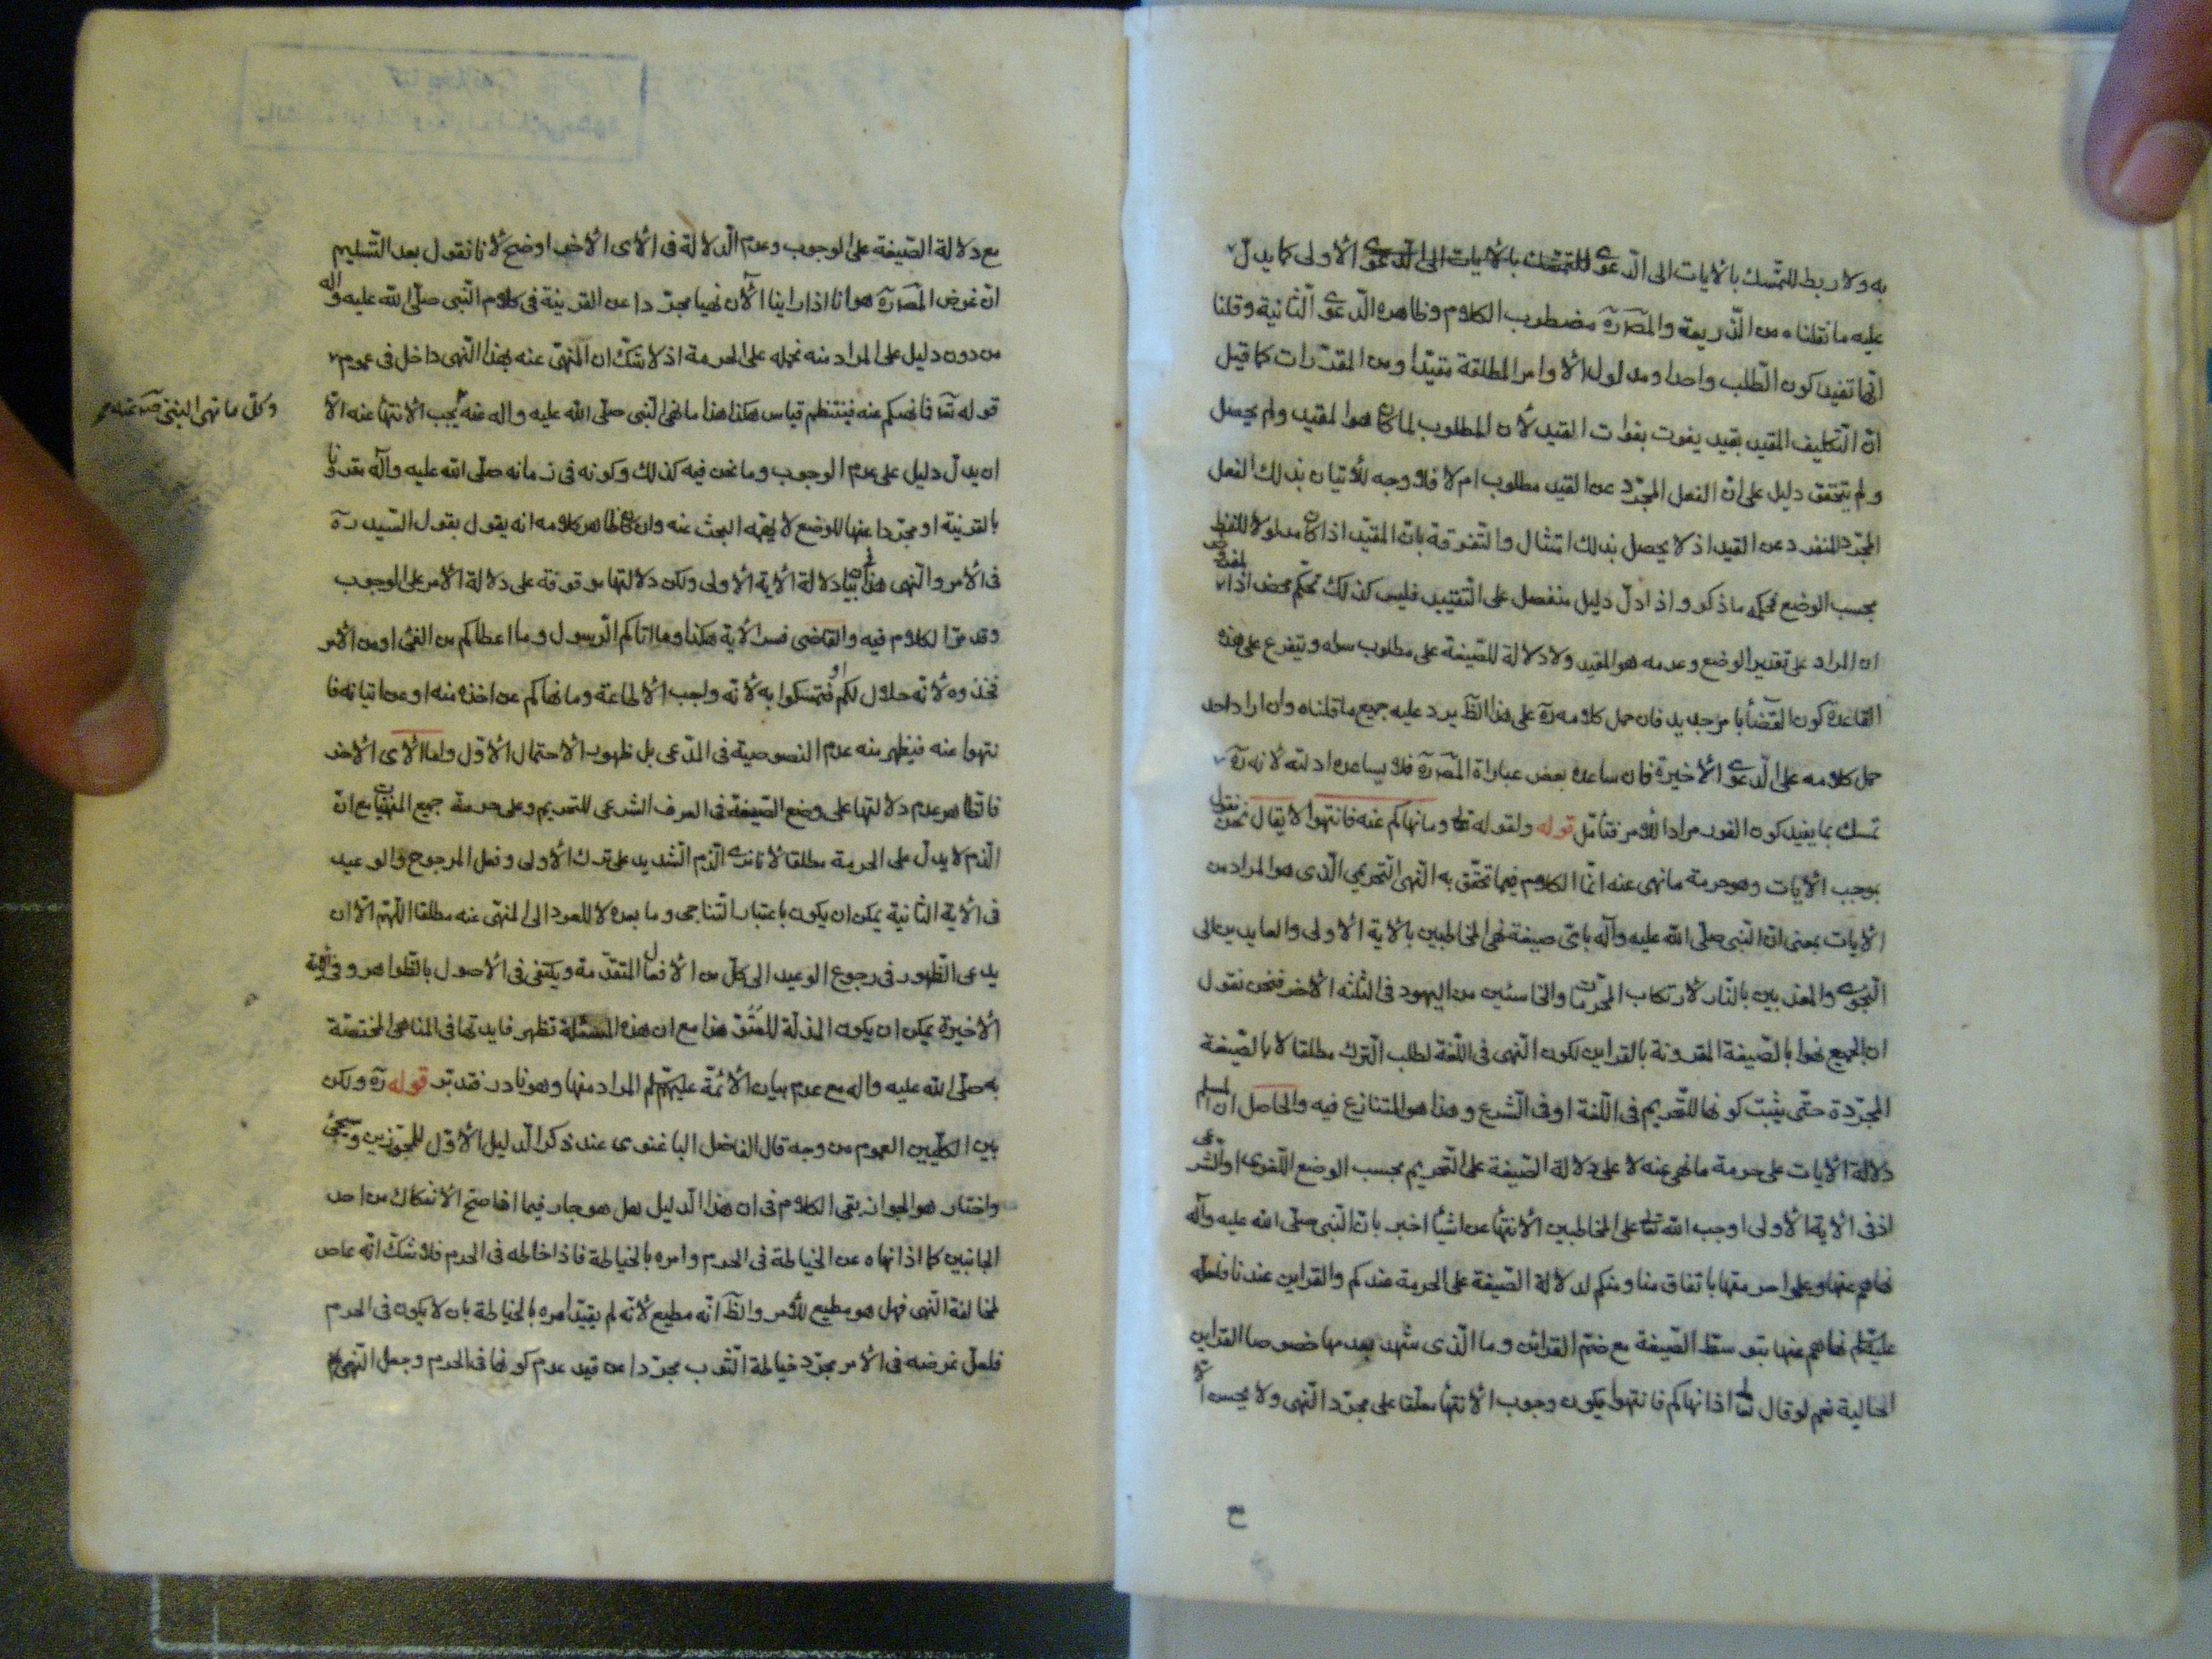 به ولا ربط للتمسّك بالايات الى الدّعوى للتمسّك بالايات الى الدّعوى الأولى كما يدلّ
عليه ما نقلناه من الذّريعة والمصرّه مضطرب الكلام وظاهره الدّعوى الثّانية وقلنا
انّها تفيد كون الطّلب واحدا ومدلول الأوامر المطلقة مقيّدا ومن المقدّرات كما قيل
انّ التّكليف المقيد بقيد يفوت بفوات القيد لأن المطلوب لما كان هو المقيد ولم يحصل
ولم يتحقق دليل على انّ الفعل المجرّد عن القيد مطلوب ام لا فلا وجه للأتيان بذلك الفعل
المجرّد المنفرد عن القيد اذ لا يحصل بذلك امتثال والتّفرقة بانّ المقيّد اذا كان مدلولا للّفظ
بحسب الوضع فحكمه ما ذكر واذا دلّ دليل منفصل على التّقييد فليس كذلك تحكّم محض اذ المفروض
ان المراد على تقدير الوضع وعدمه هو المقيد ولا دلالة للصّيغة على مطلوب سواه ويتفرع على هذه
القاعدة كون القضأ بامر جديد فان حمل كلامه ره على هذا الظّ يرد عليه جميع ما قلناه وان اراد احد
حمل كلامه على الدّعوى الأخيرة فان ساعده بعض عباراة المصّ ره فلا يساعده ادلّته لأنه ره
تمسك بما يفيد كون الفور مرادا للأمر فتأمّل قوله ولقوله تعا وما نهاكم عنه فانتهوا لا يقال نحن نقول
بموجب الأيات وهو حرمة ما نهى عنه انّما الكلام فيما تحقّق به النّهى التّحريمي الّذى هو المراد من
الأيات بمعنى انّ النّبى صلّى الله عليه وآله باىّ صيغة نهى المخاطبين بالأية الأولى والعايدين الى
النّجوى والمعذبين بالنّار لأرتكاب المحرّمات والخاسئين من اليهود فى الثلثه الأخر فنحن نقول
ان الجميع نهوا بالصّيغة المقرونة بالقراين لكون النّهى فى اللّغة لطلب التّرك مطلقا لا بالصّيغة
المجرّدة حتّى يثبت كونها للتّحريم فى اللّغة او فى الشّرع وهذا هو المتنازع فيه والحاصل ان المسلم
دلالة الأيات على حرمة ما نهى عنه لا على دلالة الصّيغة على التّحريم بحسب الوضع اللّغوى او الشّرعى
اذ فى الأية الأولى اوجب الله تعا على المخاطبين الأنتهأ عن اشيأ اخبر بانّ النّبى صلّى الله عليه وآله
نهاهم عنها وعلموا حرمتها باتفاق منا ومنكم لدلالة الصّيغة على الحرمة عندكم والقراين عندنا فلعلّه
عليه السلم نهاهم عنها بتوسّط الصّيغة مع ضمّ القرائن وما الّذى شهد بعدمها خصوصا القراين
الحالية نعم لو قال تعا اذا نهاكم فانتهوا يكون وجوب الأنتهأ معلّقا على مجرّد النّهى ولا يحسن الا
مع دلالة الصّيغة على الوجوب وعدم الدّلالة فى الأى الأخر اوضح لأنا نقول بعد التّسليم
انّ غرض المصّ ره هو انا اذا راينا الآن نهيا مجرّدا عن القرينة فى كلام النّبى صلّى الله عليه واله
من دون دليل على المراد منه نحمله على الحرمة اذ لا شكّ ان المنهىّ عنه بهذا النّهى داخل فى عموم
قوله تعا فانهيكم عنه فينتظم قياس هكذا هذا ما نهى النّبى صلّى الله عليه واله عنه يجب الأنتهأ عنه الّا
وكلّ ما نهى النبىّ ص عنه
ان يدلّ دليل على عدم الوجوب وما نحن فيه كذلك وكونه فى زمانه صلّى الله عليه وآله مقرونا
بالقرنية او مجرّدا عنها للوضع لا يهمّه البحث عنه وان كان ظاهر كلامه انه يقول بقول السّيد ره
فى الأمر والنّهى هذا بيان دلالة الأية الأولى ولكن دلالتها موقوفة على دلالة الأمر على الوجوب
وقد مرّ الكلام فيه والقاضى فسر الأية هكذا وما اتاكم الرّسول وما اعطاكم من الفئ او من الأمر
فخذوه لأنّه حلال لكم او فتمسّكوا به لأنّه واجب الأطاعة وما نهاكم عن اخذه منه او عن اتيانه فا
نتهوا عنه فيظهر منه عدم النصوصية فى المدّعى بل ظهور الأحتمال الأوّل واما الأى الأخر
فالظاهر عدم دلالتها على وضع الصّيغة فى العرف الشرعى للتحريم وعلى حرمة جميع المنهيات مع انّ
الذّم لا يدلّ على الحرمة مطلقا لأنا نرى الذّم الشّديد على ترك الأولى وفعل المرجوح والوعيد
فى الأية الثانية يمكن ان يكون باعتبار التّناجى وما بعده لا للعود الى المنهىّ عنه مطلقا اللّهمّ الّا ان
يدعى الظّهور فى رجوع الوعيد الى كلّ من الأفعال المتقدّمة ويكتفى فى الأصول بالظّواهر وفى الأية
الأخيرة يمكن ان يكون المذلّة للعتوّ هذا مع ان هذه المسئلة تظهر فايدتها فى المناهى المختصّة
به صلّى الله عليه واله مع عدم بيان الأئمّة عليهم السلم المراد منها وهو نادر فتدبّر قوله ره ولكن
بين الكلّيّين العموم من وجه قال الفاضل الباغنوى عند ذكر الدّليل الأوّل للمجوّزين وسيجئ
واختار هو الجواز بقى الكلام فى ان هذا الدّليل هل هو جار فيما اذا صحّ الأنفكاك من احد
الجانبين كما اذا نهاه عن الخياطة فى الحرم وامره بالخياطة فاذا خاطه فى الحرم فلا شكّ انّه عاص
لمخالفة النّهى فهل هو مطيع للأمر والظّ انّه مطيع لأنّه لم يقيّد امره بالخياطة بان لا يكون فى الحرم
فلعلّ غرضه فى الأمر مجرّد خياطة الثّوب مجرّدا عن قيد عدم كونها فى الحرم وجعل النّهى